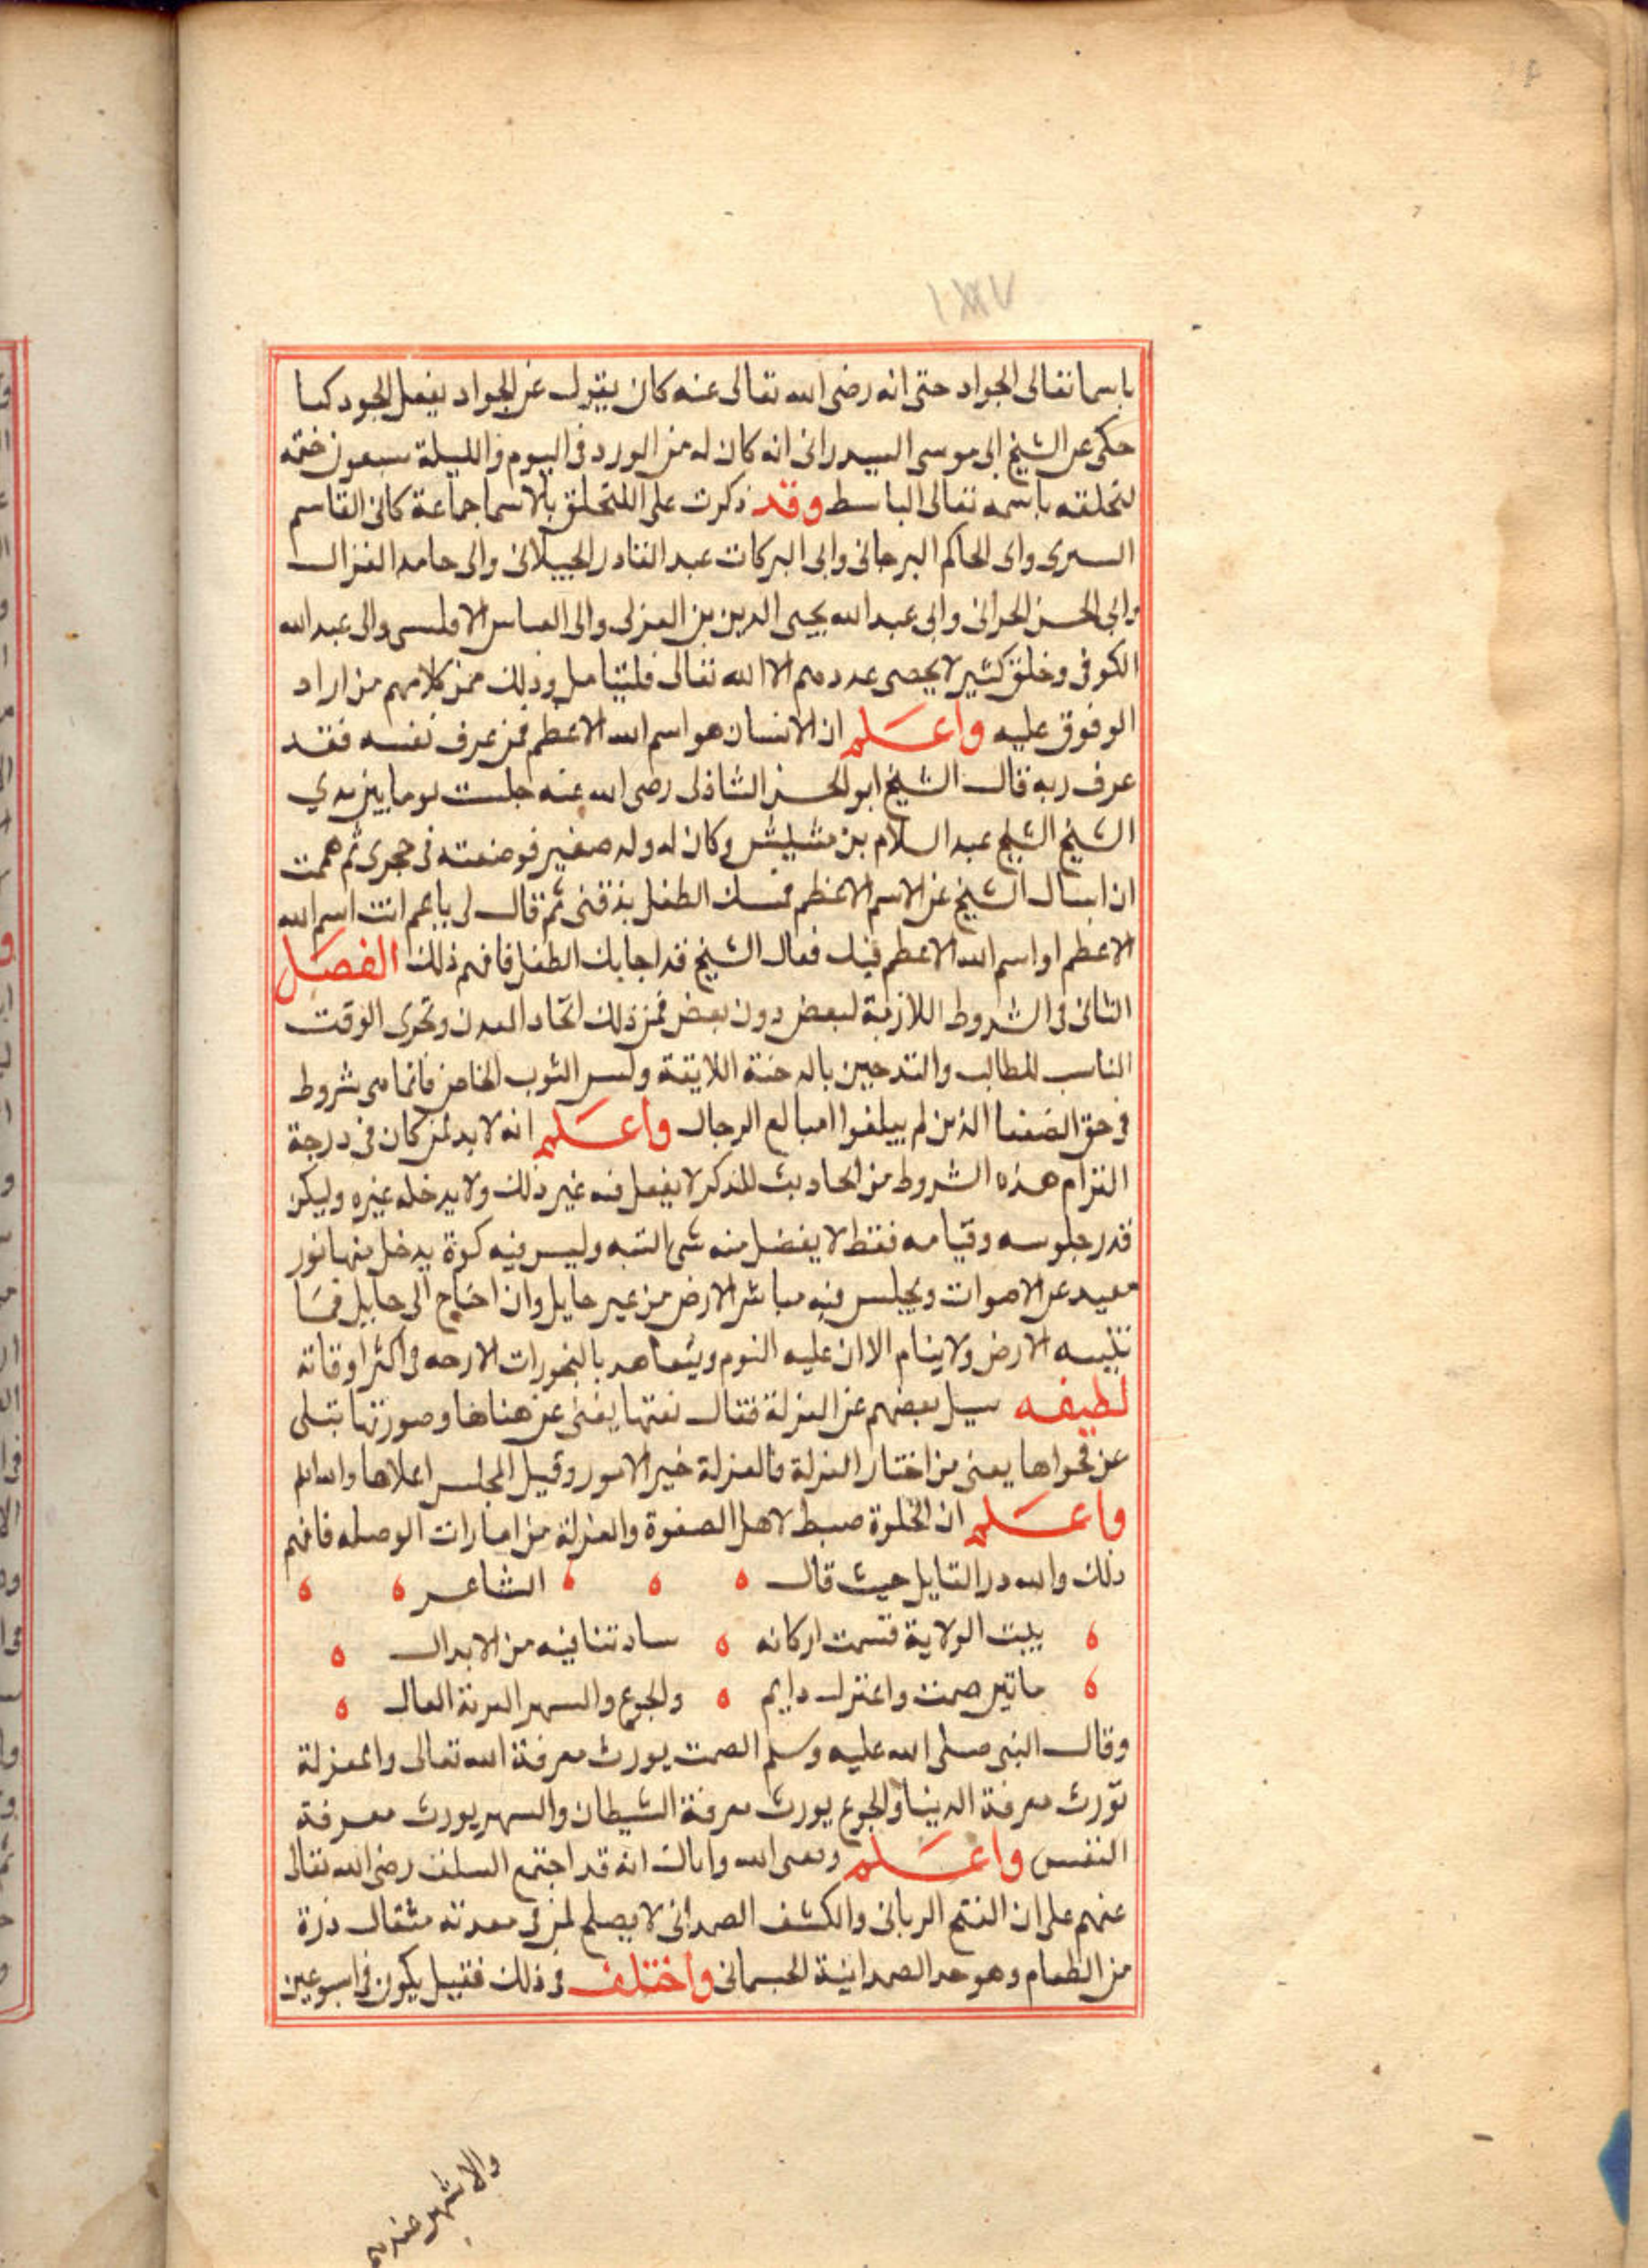 باسما تعالى الجواد حتى انه رضى الله تعالى عنه كان يقول عن الجواد يفعل الجود كما
حكى عن الشيخ ابى موسى السيدرانى انه كان له من الورد فى اليوم والليلة سبعون ختمه
لتخلقه باسمه تعالى الباسط وقد ذكرت على المتخلق بالاسما جماعة كابى القاسم
السرى وابى الحاكم البرجانى وابى البركات عبد القادر الجيلانى وابى حامد الغزال
وابى الحسن الحرانى وابى عبد الله يحيى الدين بن العزلى وابى العباس الاقلسى وابى عبد الله
الكوفى وخلق كثير لا يحصى عددهم الا الله تعالى فليتامل وذلك ممن كلامهم من اراد
الوقوق عليه واعلم ان الانسان هو اسم الله الاعظم فمن عرف نفسه فقد
عرف ربه قال الشيخ ابو الحسن الشاذلى رضى الله عنه جلست يوما بين يدي
الشيخ الشيخ عبد السلام بن مشيش وكان له ولد صغير فوضعته فى حجرى ثم هممت
ان اسال الشيخ عن الاسم الاعظم فمسك الطفل بذقنى ثم قال لى ياعم انت اسم الله
الاعظم او اسم الله الاعظم فيك فقال الشيخ قد اجابك الطفل فافهم ذلك الفصل
الثانى فى الشروط اللازمة لبعض دون بعض فمن ذلك اتحاد المعدن وتحرى الوقت
الناسب للمطالب والتدخين بالدخنة اللايقة ولبس الثوب الخاص فانما هى شروط
فى حق الضعفا الذين لم يبلغوا مبالع الرجال واعلم انه لا بد لمن كان فى درجة
التزام هذه الشروط من الحاديث للذكر لا يفعل فيه غير ذلك ولا يدخله غيره وليكن
قدر جلوسه وقيامه فقط لا يفضل منه شى البته وليس فيه كوة يدخل منها نور
بعيد عن الاصوات ويجلس فيه مباشر الارض من غير حايل وان احتاج الى حايل فمما
تنبسه الارض ولا ينام الا ان عليه النوم ويتعاهد بالبخورات الارحه فى اكثر اوقاته
لطيفه سيل بعضهم عن العزلة فقال نعتها يغنى عن هناها وصورتها تبلى
عن فحواها يعنى من اختار العزلة فالعزلة خير الامور وقيل المجلس اعلاها والله اعلم
واعلم ان الخلوة ضبط لاهل الصفوة والعزلة من امارات الوصله فافهم
ذلك ولله در القايل حيث قال الشاعر
بيت الولاية قسمت اركانه ساداتنا فيه من الابدال
ما بين صمت واعتزال دايم والجوع والسهر العرنة العال
وقال النبى صلى الله عليه وسلم الصمت يورث معرفة الله تعالى والمعزلة
تورث معرفة الدينا والجوع يورث معرفة الشيطان والسهر يورث معرفة
النفس واعلم وفقنى الله واياك انه قد اجتمع السلف رضى الله تعالى
عنهم على ان الفتح الربانى والكشف الصمدانى لا يصلح لمن فى معدته مثقال ذرة
من الطعام وهو حد الصمدانية الجسمانى واختلف فى ذلك فقيل يكون فى اسبوعين
والاشهر عندهم